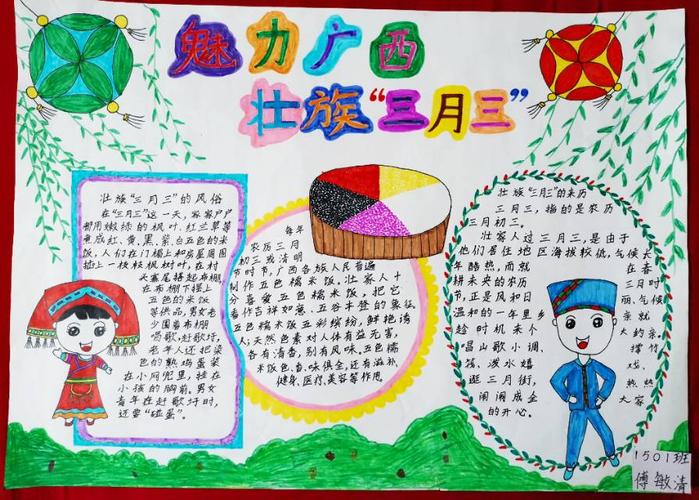 魅力广西
壮族“三月三”
壮族“三月三”的风俗
在“三月三”这一天，家家户户
都用嫩绿的枫叶、红兰草等
煮成红、黄、黑、紫、白五色的米
饭，人们在门楣上和房屋周围
插上一枝枝枫树叶，在村
寨尾搭起布棚，
在布棚下摆上
五色的米饭
等供品，男女老
少围着布棚
唱歌，赶歌圩，
老年人还把染
色的熟鸡蛋装
在小网兜里，挂在
小孩的胸前。男女
青年在赶歌圩时，
还要“碰蛋”。
每年
农历三月
初三或清明
节时节，广西各族人民普遍
制作五色糯米饭。壮家人十
分喜爱五色糯米饭，把它
看作吉祥如意、五谷丰登的象征。
五色糯米饭五彩缤纷，鲜艳诱
人；天然色素对人体有益无害，
各有清香，别有风味。五色糯
米饭色、香、味俱全，还有滋补、
健身、医疗、美容等作用。
壮族“三月三”的来历
三月三，指的是农历
三月初三。
壮家人过三月三，是由于
他们居住地区海拔较低，气候长
年酷热，而就在春
耕未央的农历三月时
节，正是风和日丽、气候
温和的一年里乡亲就
趁时机来个大约亲，
唱山歌小调、
荡、泼水嬉戏，
逛三月街，热热
闹闹成金大家
的开心。
1501班
傅敏清